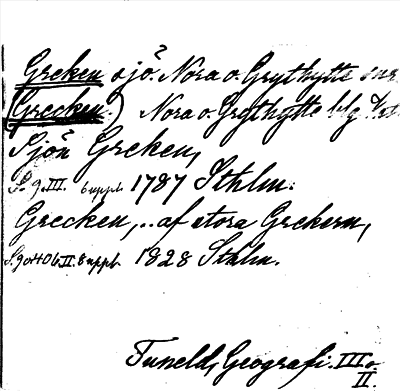 Greken sjö. Nora o. Grythytte snr
(Grecken.) Nora o. Grythytte blg
Sjön Greken,
S. 9. III. 6 uppl. 1787 Sthlm.
Grecken, .. af stora Grekern,
II. 8 uppl. 1828 Sthlm.
Tuneld, Geografi. III o.
II.